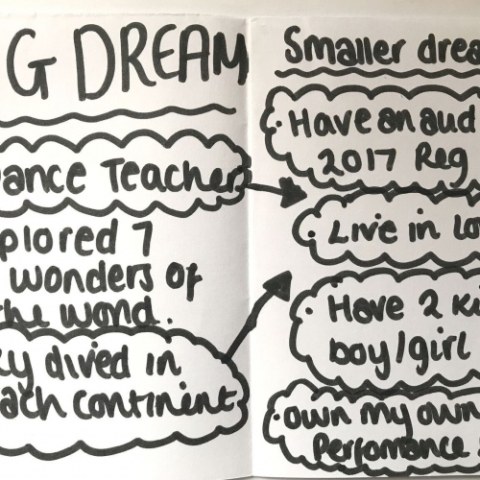 G DREAM
ance Teacher
plored 7
wonders of
the world.
ky dived in
ach continent
Smaller drea
Have an aud
2017 Reg
Live in Lo
Have 2 Ki
boy/girl
own my own
Perfomance